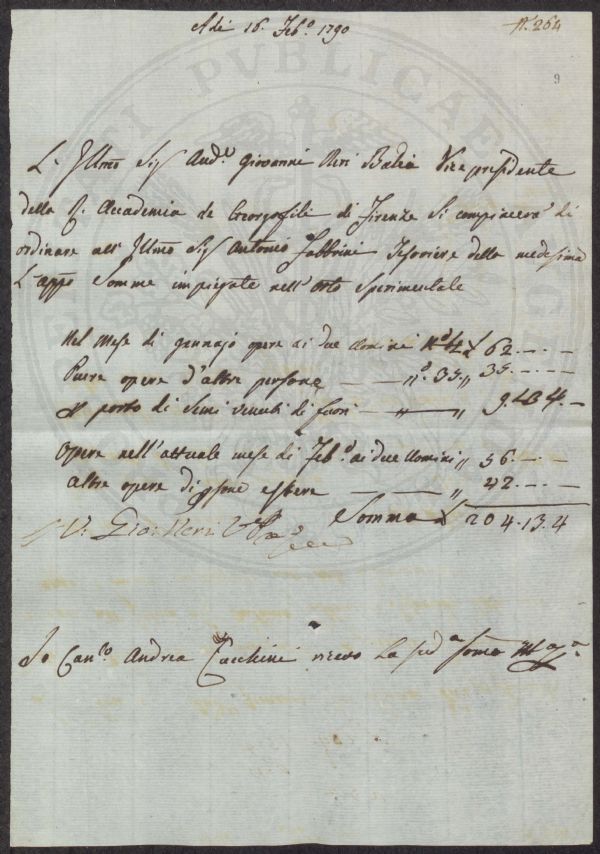 Adi 16. Feb.o 1790
N. 264
9
L. Illmo Sig.r Aud.e Giovanni Neri Badia Vice presidente
della R. Accademia de Georgofili di Firenze si compiacerà di
ordinare all' Illmo Sig.r Antonio Fabbrini Tesoriere della medesima
L'app.o Somme impiegate nell'orto Sperimentale
Nel mese di gennajo opere ai due Uomini 62. - . -
Pure opere d'altre persone - n.o 35 „ 35. - . -
porto di Semi venuti di fuori - „ - „ 9. 13. 4. -
Opere nell'attuale mese di Feb.o ai due Uomini „ 56. - . -
altre opere di - „ 42. - . -
Somma £ 204. 13. 4
V. Gio: Neri
Io Can.co Andrea Zucchini ricevo la sud.a soma